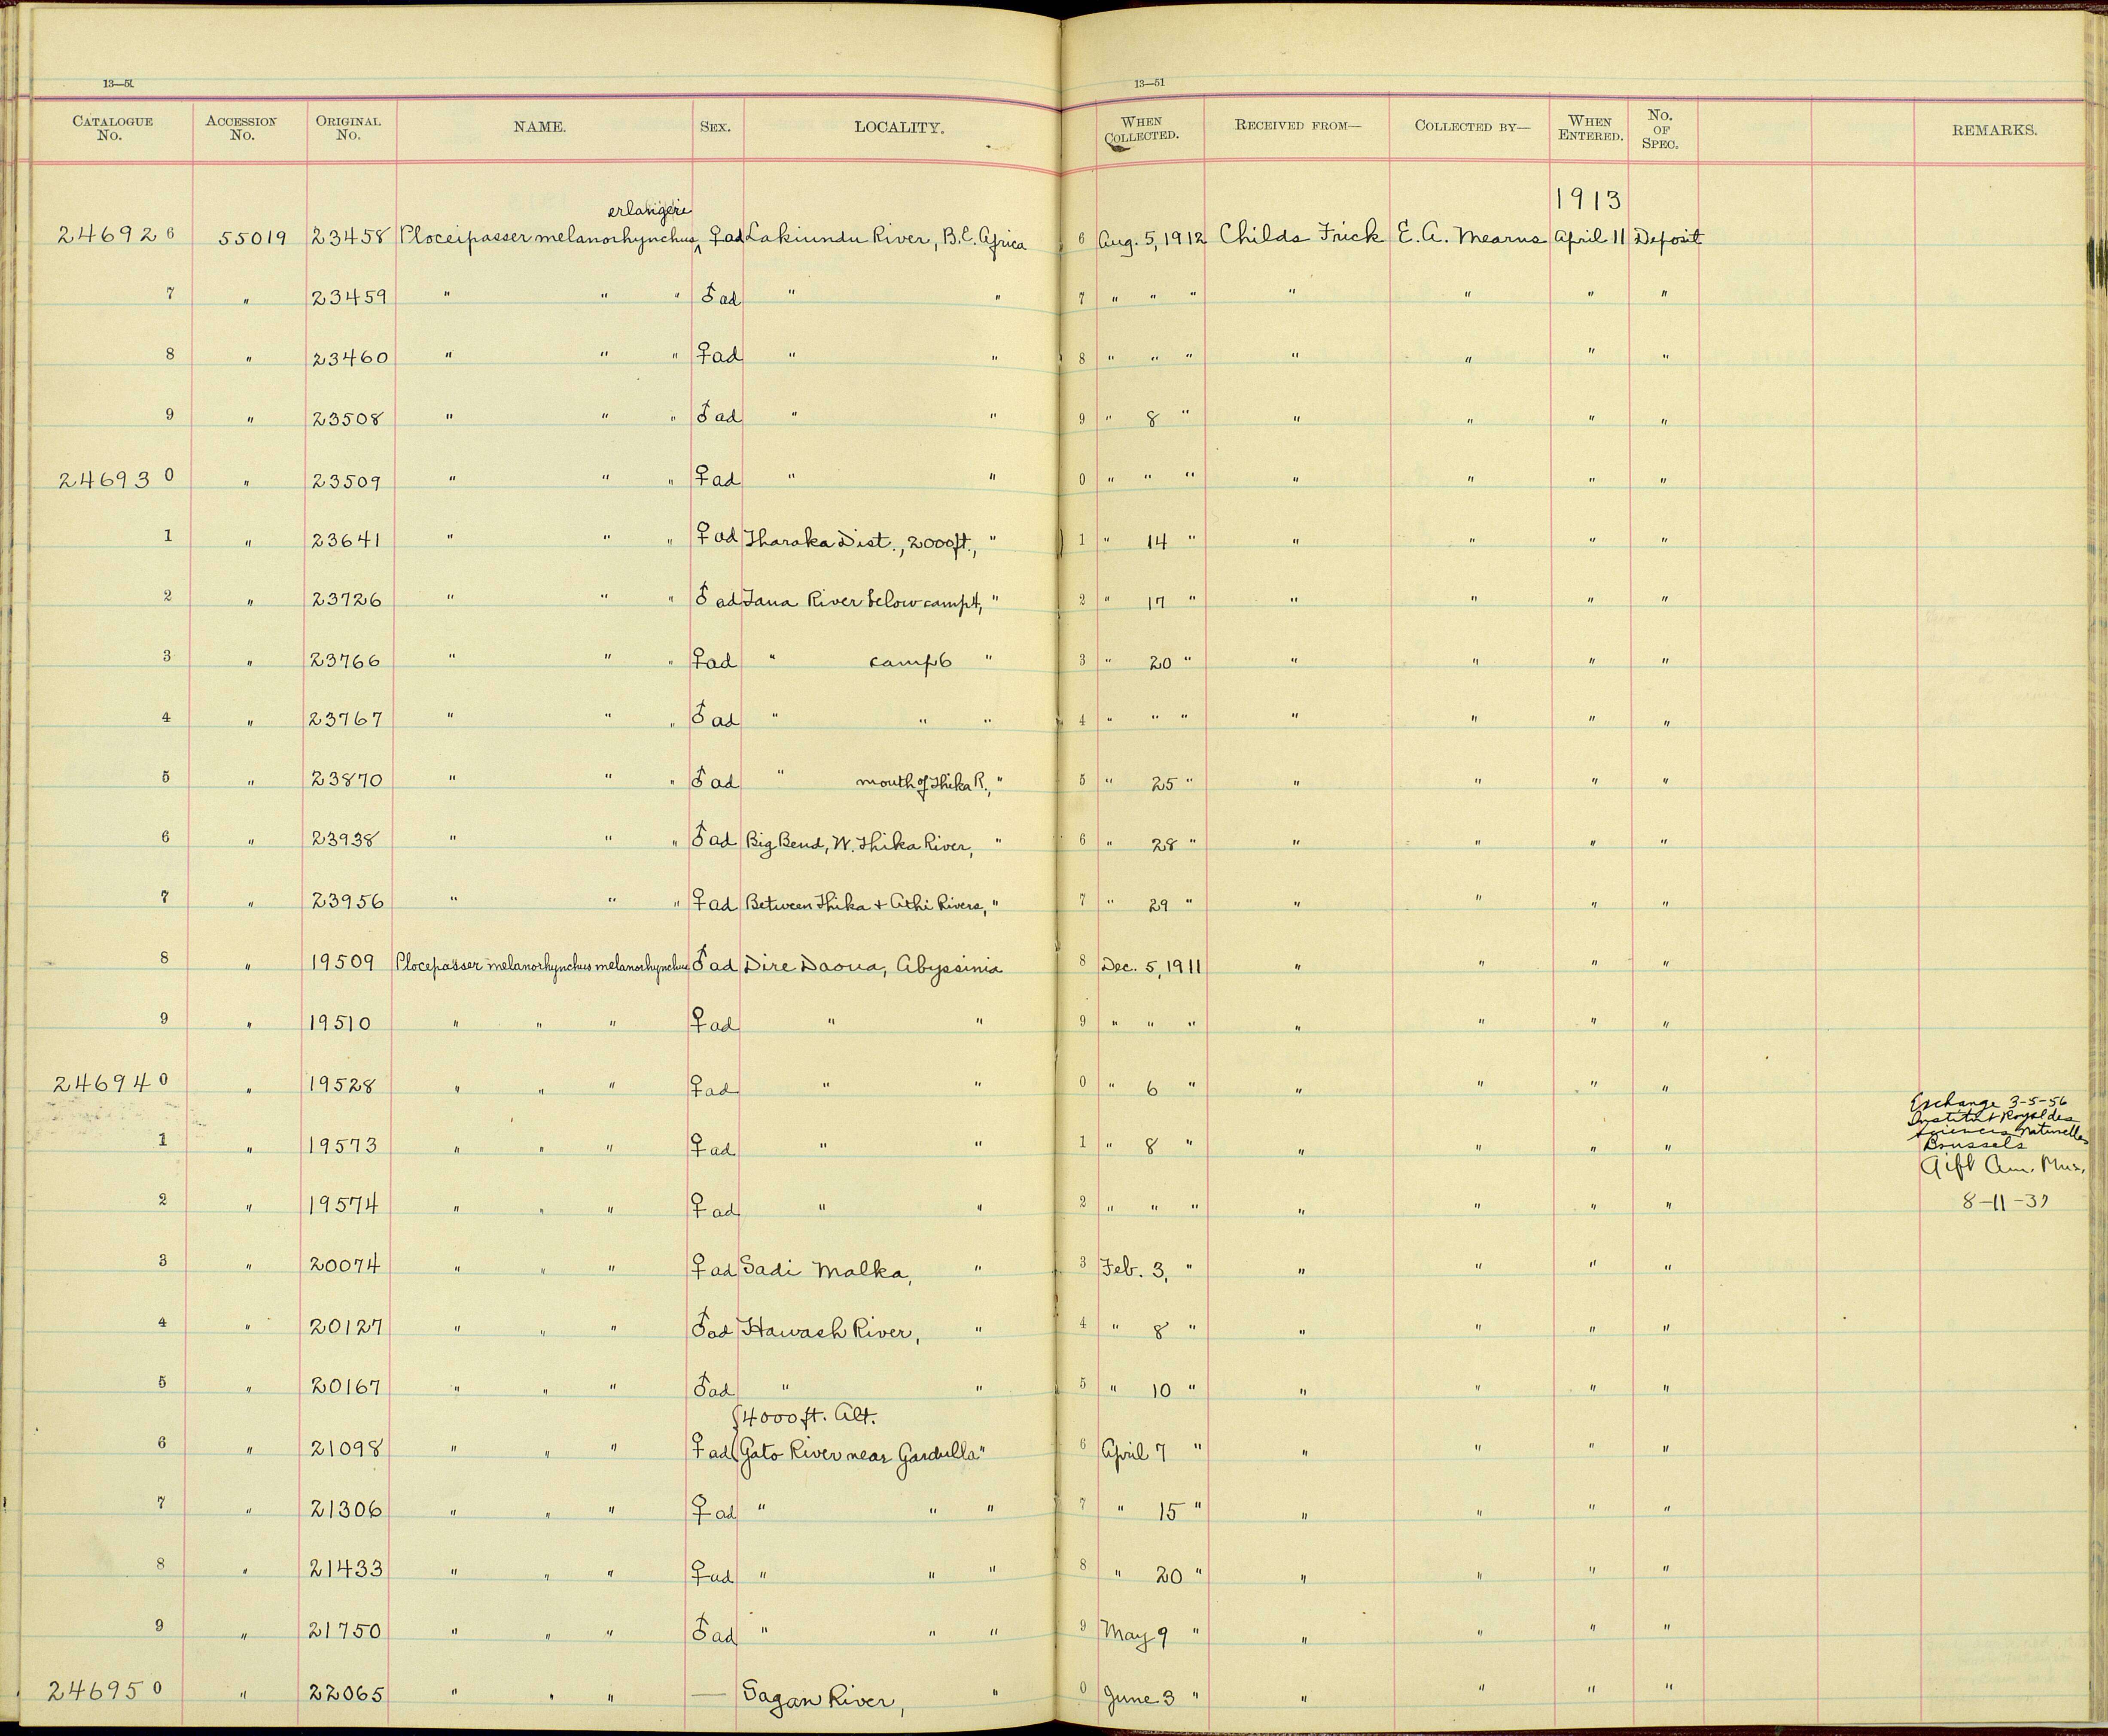 13—51
13—51
CATALOGUE No. ACCESSION No. ORIGINAL No. NAME. SEX. LOCALITY. WHEN COLLECTED. RECEIVED FROM— COLLECTED BY— WHEN ENTERED. No. OF SPEC. REMARKS.
1913
erlangeri
246926 55019 23458 Ploceipasser melanorhynchus ^ ♀ad Lakiundu River, B.E. Africa 6 Aug. 5, 1912 Childs Frick E. A. Mearns April 11 Deposit
7 " 23459 " " " ♂ad " " 7 " " " " " " "
8 " 23460 " " " ♀ad " " 8 " " " " " " "
9 " 23508 " " " ♂ad " " 9 " 8 " " " " "
246930 " 23509 " " " ♀ad " " 0 " " " " " " "
1 " 23641 " " " ♀ad Tharaka Dist., 2000ft., " 1 " 14 " " " " "
2 " 23726 " " " ♂ad Tana River below camp 4, " 2 " 17 " " " " "
3 " 23766 " " " ♀ad " camp 6 " 3 " 20 " " " " "
4 " 23767 " " " ♂ad " " " 4 " " " " " " "
5 " 23870 " " " ♂ad " mouth of Thika R., " 5 " 25 " " " " "
6 " 23938 " " " ♂ad Big Bend, W. Thika River, " 6 " 28 " " " " "
7 " 23956 " " " ♀ad Between Thika + Athi Rivers, " 7 " 29 " " " " "
8 " 19509 Plocepasser melanorhynchus melanorhynchus ♂ad Dire Daoua, Abyssinia 8 Dec. 5, 1911 " " " "
9 " 19510 " " " ♀ad " " 9 " " " " " " "
246940 " 19528 " " " ♀ad " " 0 " 6 " " " " "
Exchange 3-5-56
Institut Royal des
Sciences Naturelles
Brussels
1 " 19573 " " " ♀ad " " 1 " 8 " " " " "
Gift Am. Mus.
2 " 19574 " " " ♀ad " " 2 " " " " " " " 8-11-37
3 " 20074 " " " ♀ad Sadi Malka, " 3 Feb. 3, " " " " "
4 " 20127 " " " ♂ad Hawash River, " 4 " 8 " " " " "
5 " 20167 " " " ♂ad " " 5 " 10 " " " " "
4000 ft. Alt.
6 " 21098 " " " ♀ad Gato River near Gardulla " 6 April 7 " " " " "
7 " 21306 " " " ♀ad " " " 7 " 15 " " " " "
8 " 21433 " " " ♀ad " " " 8 " 20 " " " " "
9 " 21750 " " " ♂ad " " " 9 May 9 " " " " "
246950 " 22065 " " " — Sagan River, " 0 June 3 " " " " "